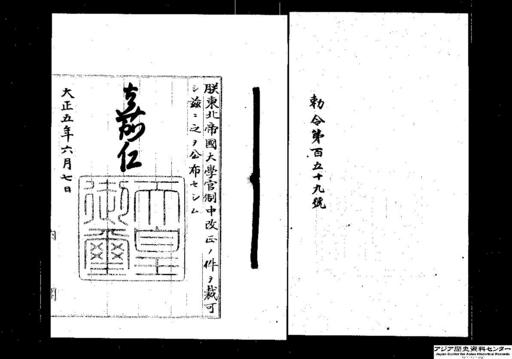 勅令第百五十九號
朕東北帝國大學官制中改正ノ件ヲ裁可
シ茲ニ之ヲ公布セシム
嘉仁
天皇御璽
大正五年六月七日
内閣
アジア歴史資料センター
Japan Center for Asian Historical Records